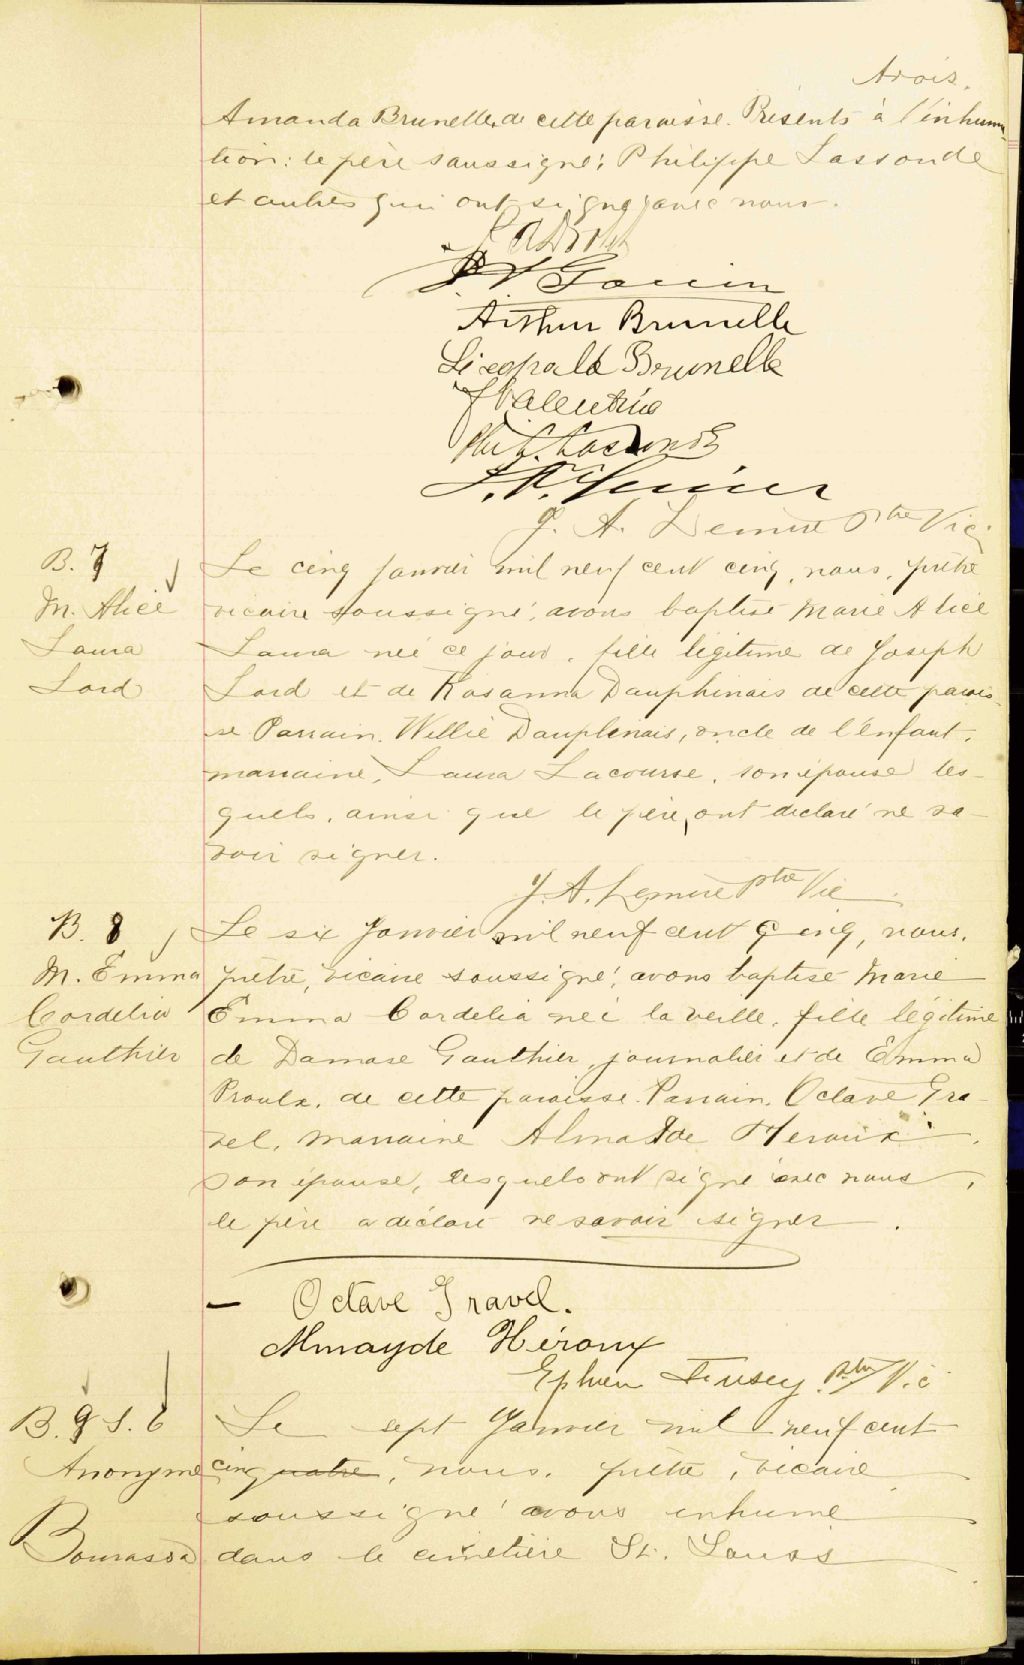 trois.
Amanda Brunelle, de cette paroisse. Présents à l'inhuma-
tion: le père soussigné; Philippe Lassonde
et autres qui ont signé avec nous.
Gouin
Arthur Brunelle
Leopold Brunelle
J Valentine
Phil. Lassonde
J. A. Lemire Ptre Vic.
B. 7
M. Alice
Laura
Lord
Le cinq Janvier mil neuf cent cinq, nous, prêtre
vicaire soussigné, avons baptisé Marie Alice
Laura née ce jour, fille légitime de Joseph
Lord et de Rosanna Dauphinais de cette parois-
se Parrain, Willie Dauphinais, oncle de l'enfant,
marraine, Laura Lacourse, son épouse les-
quels, ainsi que le père, ont déclaré ne sa-
voir signer.
J. A. Lemire Ptre Vic
B. 8
M. Emma
Cordelia
Gauthier
Le six Janvier mil neuf cent cinq, nous,
prêtre, vicaire soussigné, avons baptisé Marie
Emma Cordelia née la veille, fille légitime
de Damase Gauthier, journalier et de Emma
Proulx, de cette paroisse. Parrain, Octave Gra-
vel, marraine Almaïde Heroux,
son épouse, lesquels ont signé avec nous,
le père a déclaré ne savoir signer.
Octave Gravel.
Almayde Héroux
Ephrem Ptre Vic
B. 9 S. 6
Anonyme
Bourassa
Le sept Janvier mil neuf cent
cinq quatre, nous, prêtre, vicaire
soussigné avons inhumé
dans le cimetière St. Louis